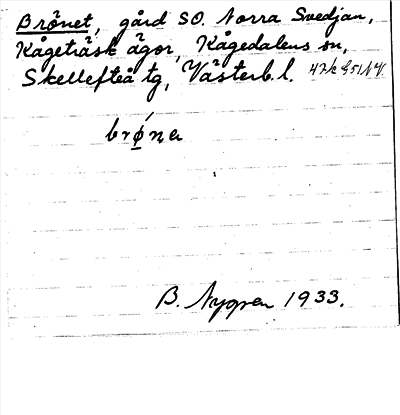 Brönet, gård SO. Norra Svedjan,
Kågeträsk ägor, Kågedalens sn,
Skellefteå tg, Västerb. l.
brǿnɐ
B. Nygren 1933.